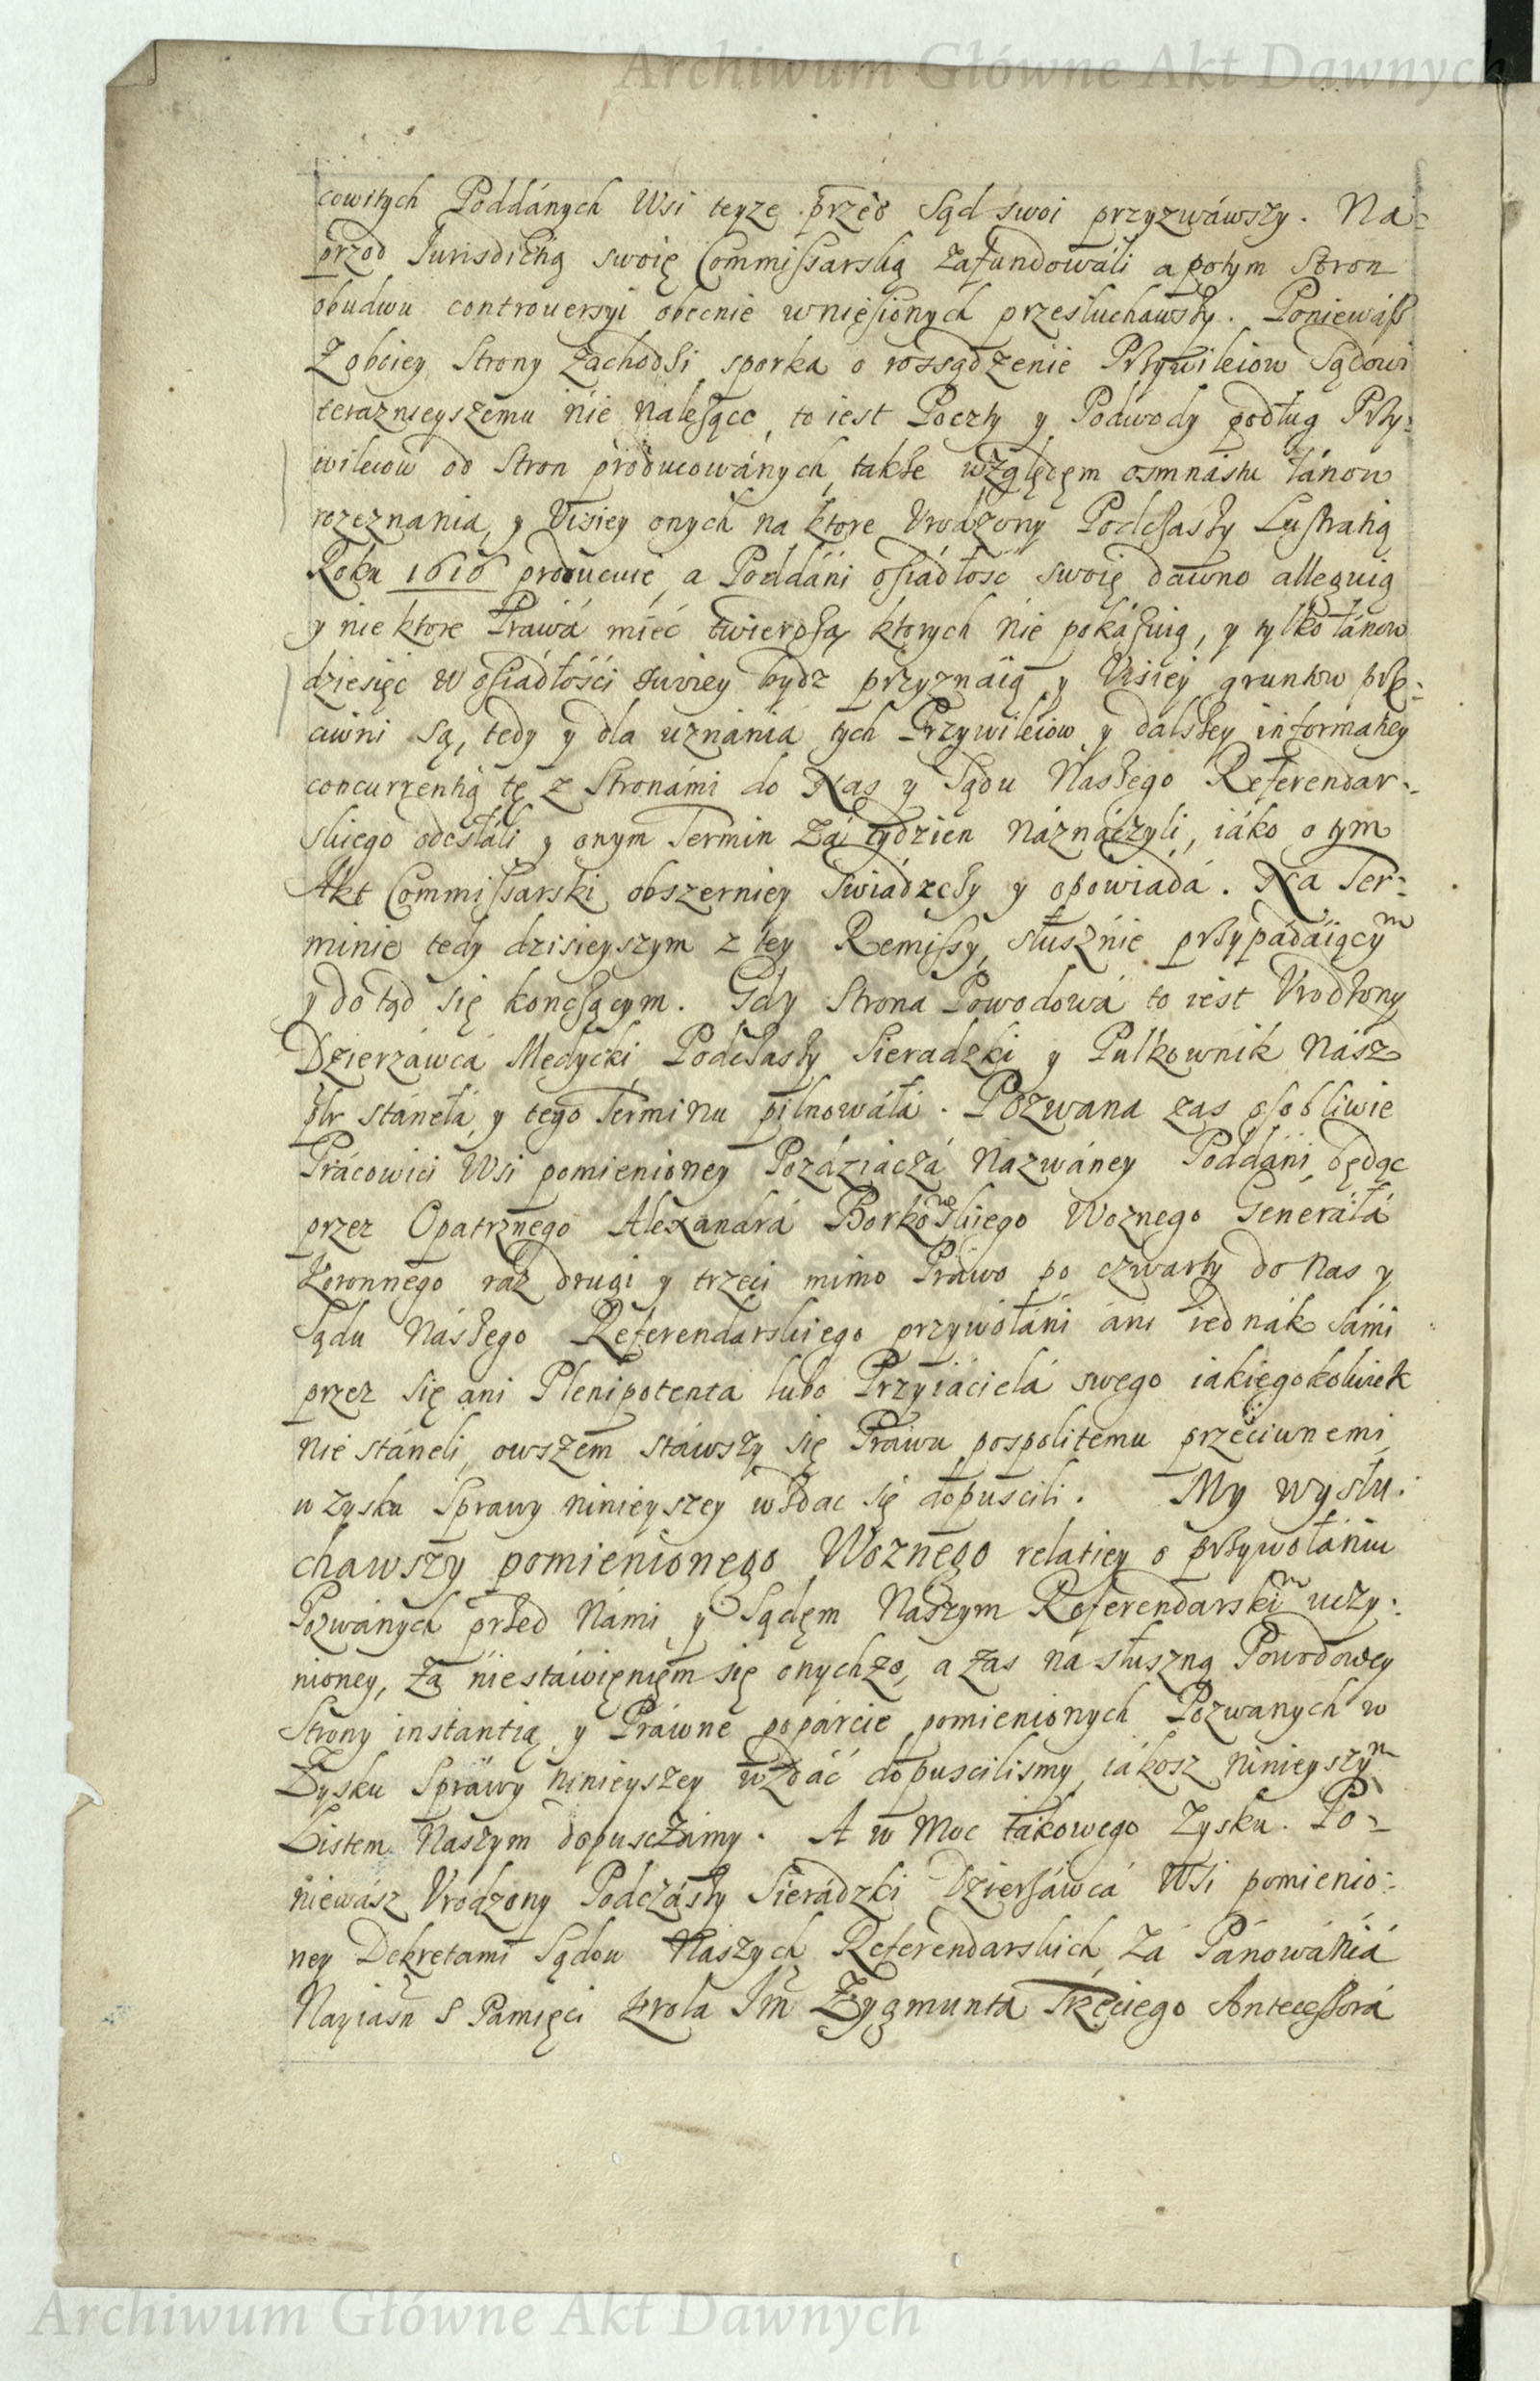 Archiwum Główne Akt Dawnych
cowitych Poddánych Wsi teyze przed Sąd swoi przyzwáwszy. Na=
przod Jurisdictią swoię Commissarską zafundowáli a potym Stron
obudwu controuersyi obecnie wnięsionych przesłuchawszy. Poniewász
Z obciey Strony zachodżi sporka o rozsądzenie Przywileiow Sądowi
teraznieyszemu nie należące, to iest Poczty y Podwody podług Przy=
wileiow od Stron producowánych, także względęm osmnástu łánow
rozeznania, y Visiey onych na ktore Vrodzony Podczászy Lustratią
Roku 1616 producuie, a Poddáni osiádłosc swoię dawno alleguią
y nie ktore Prawá mieć twierdzą, ktorych nie pokázuią, y tylko łánow
dziesięć w osiádłości swoiey bydz przyznáią y Visiey gruntow prze=
ciwni są, tedy y dla uznánia tych Przywileiow y dalszey informatiey
concurrentią tę z Stronámi do Nas y Sądu Naszego Referendar=
skiego odesłáli y onym Termin zá tydzien náznáczyli, iáko o tym
Akt Commissarski obszerniey swiádczy y opowiáda. Na Ter=
minie tedy dzisieyszym z tey Remissy, słusznie przypadáiącym
y do tąd się konczącym. Gdy Strona Powodowá to iest Vrodzony
Dzierzáwcá Medycki Podczászy Sieradzki y Pułkownik Nász
ptr stánęłá y tego Terminu pilnowáłá. Pozwana zas osobliwie
Prácowici Wsi pomienioney Pozdziaczá Nazwáney Poddáni, będąc
przez Opatrznego Alexandrá Borkowskiego Woznego Generałá
Koronnego raz drugi y trzeci mimo Práwo po czwarty do Nas y
Sądu Nászego Referendarskiego przywołáni áni iednák sámi
przez się ani Plenipotenta lubo Przyiacielá swego iakiegokolwiek
nie stáneli, owszem stáwszy się Práwu pospolitemu przeciwnemi
w zysku Sprawy ninieyszey wzdac się dopuscili. My wysłu=
chawszy pomienionego Woznego relatiey o przywołániu
Pozwánych przed Námi y Sądęm Naszym Referendarskim uczy=
nioney, zá niestáwięnięm się onychze, a zas na słuszną Powodowey
Strony instantią y Práwne popárcie pomienionych Pozwanych w
Zysku Spráwy ninieyszey wzdáć dopuscilismy, iákosz ninieyszym
Listem Naszym dopuszczámy. A w Moc tákowego Zysku. Po=
niewász Vrodzony Podczászy Sierádzki Dzierżáwcá Wsi pomienio=
ney Dekretami Sądow Nászych Referendarskich zá Pánowánia
Nayiasn S Pamięci Krola Jm Zygmunta Trzeciego Antecessorá
Archiwum Główne Akt Dawnych